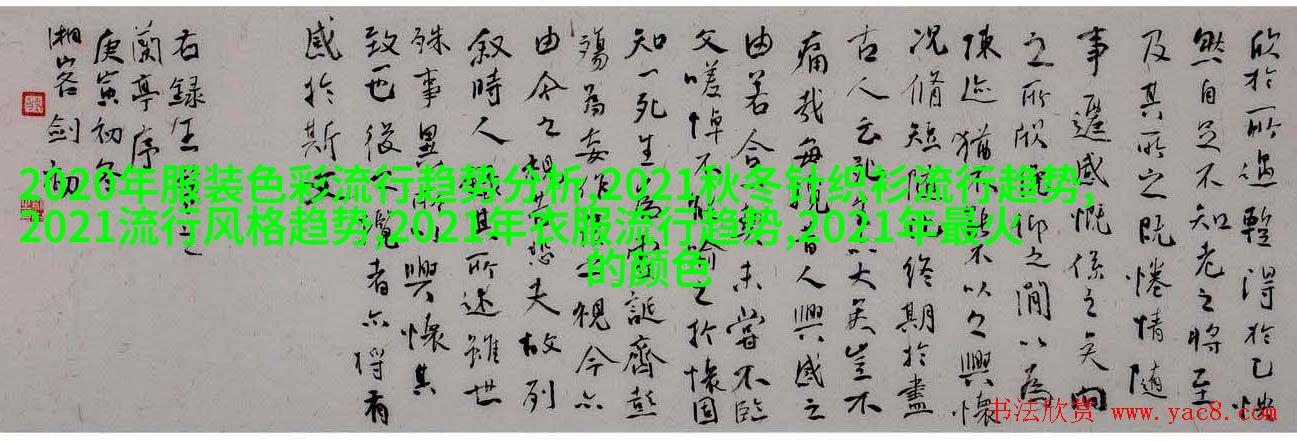 欣於所遇暫得於己快
然自足不知老之將至
及其所之既惓情隨
事遷感慨係之矣向
之所欣俛仰之間以為
陳迹猶不能不以之興懷
况脩短隨化終期於盡
古人云死生亦大矣豈不
痛哉每攬昔人興感之
由若合一契未嘗不臨
文嗟悼不能喻之於懷固
知一死生為虛誕齊彭
殤為妄作後之視今亦
由今之視昔悲夫故列
叙時人錄其所述雖世
殊事異所以興懷其
致一也後之攬者亦將有
感於斯文
右録王羲之
蘭亭序
庚寅初冬
湘客剑初
2020年服装色彩流行趋势分析,2021秋冬针织衫流行趋势,
2021流行风格趋势,2021年衣服流行趋势,2021年最火
的颜色
书法欣赏 www.yac8.com